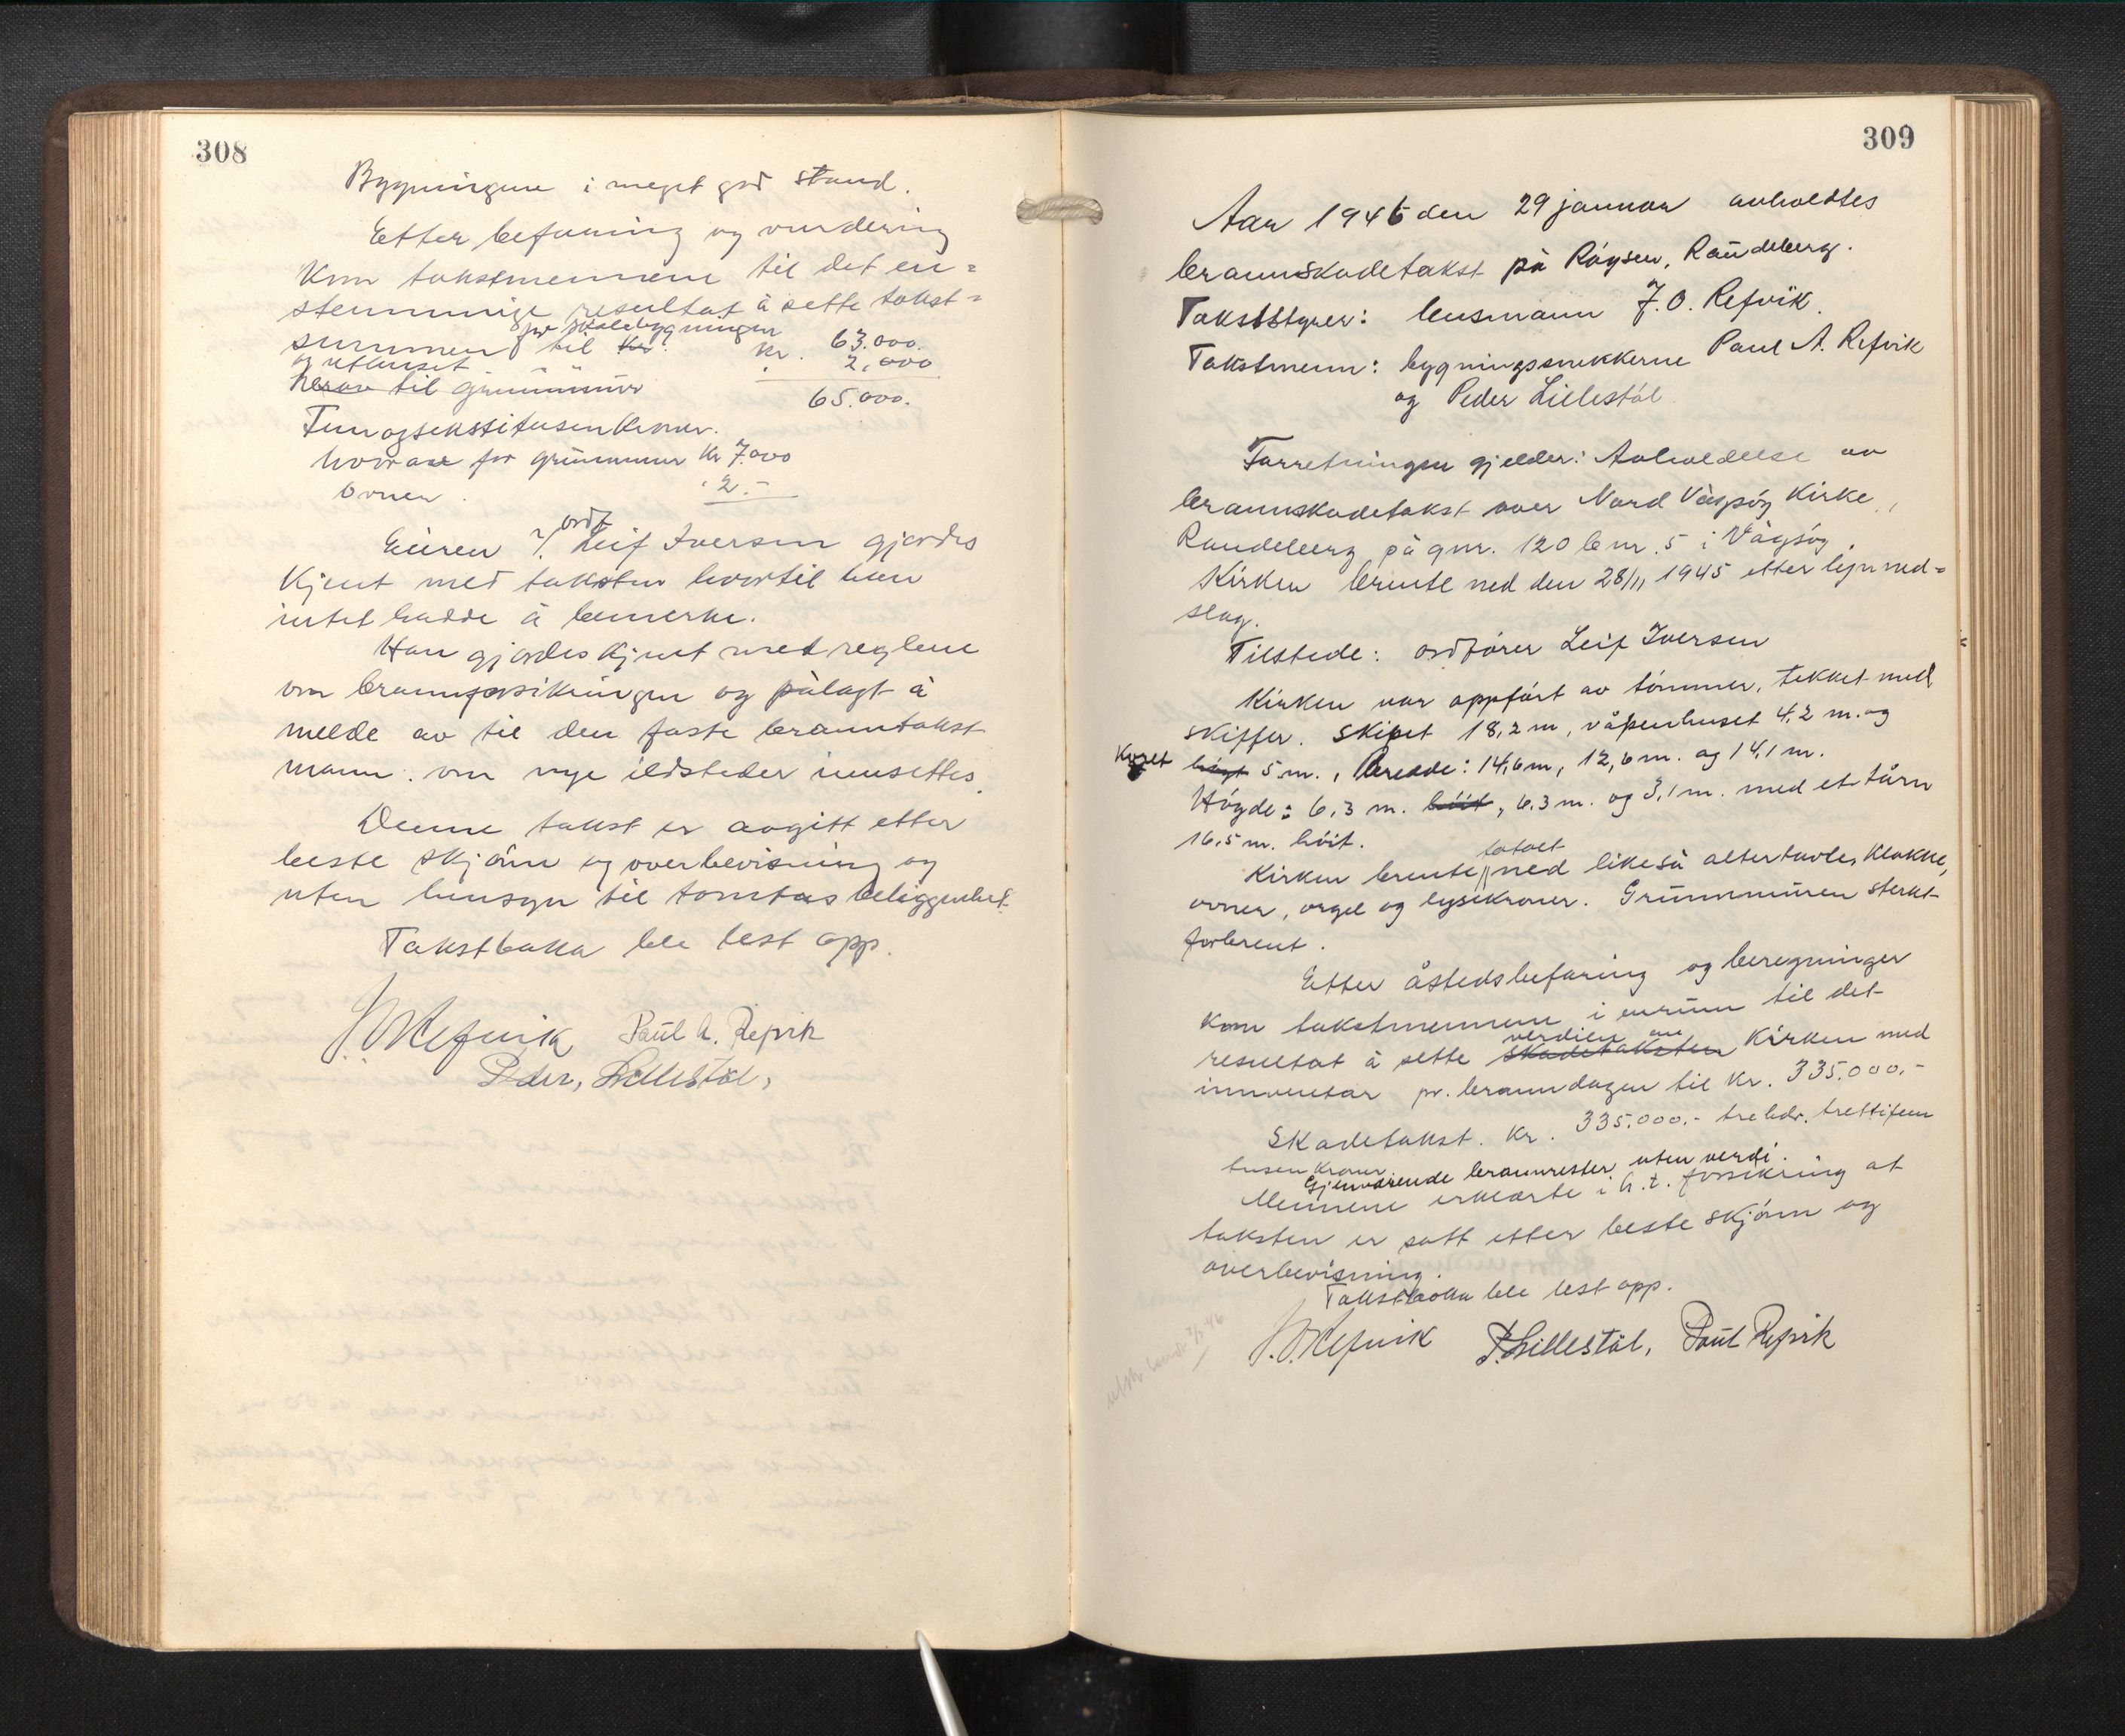 308
Bygningene i meget god stand.
Etter befaring og vurdering
kom takstmennene til det en=
stemmige resultat å sette takst=
for skolebygningen
summen til kr. kr. 63.000.
og uthuset " " " 2,000
herav til grunnmur
65.000.
Femogsekstitusenkroner.
hvorav for grunnmur kr 7.000
ovner. " 2.-
ordf
Eieren v/. Leif Iversen gjordes
kjent med taksten hvortil han
intet hadde å bemerke.
Han gjordes kjent med reglene
om brannforsikringen og pålagt å
melde av til den faste branntakst
mann. om nye ildsteder innsettes.
Denne takst er avgitt etter
beste skjønn og overbevisning og
uten hensyn til tomtas beliggenhet.
Takstboka ble lest opp.
J. O. Refvik Paul A. Refvik
Peder, Lillestøl,
309
Aar 1946 den 29 januar avholdtes
brannskadetakst på Røysen, Raudeberg.
Takststyrer: lensmann J. O. Refvik.
Takstmenn: bygningssnekkerne Paul A. Refvik
og Peder Lillestøl
Forretningen gjelder: Avholdelse av
brannskadetakst over Nord Vågsøy Kirke,
Raudeberg på gnr. 120 bnr. 5 i Vågsøy.
Kirken brente ned den 28/11 1945 etter lynned=
slag.
Tilstede: ordfører Leif Iversen
Kirken var oppført av tømmer, tekket med
skiffer. Skipet 18,2 m, våpenhuset 4,2 m. og
Koret høgt 5 m., Bredde: 14,6 m, 12,6 m. og 14,1 m.
Høyde: 6,3 m. høit, 6,3 m. og 3,1 m. med et tårn
16,5 m. høit.
totalt
Kirken brente ned likeså altertavle, klokke,
ovner, orgel og lysekroner. Grunnmuren sterkt
forbrent.
Etter åstedsbefaring og beregninger
kom takstmennene i enrum til det
verdien av
resultat å sette skadetaksten Kirken med
innventar pr. branndagen til kr. 335.000.-
Skadetakst. kr. 335.000.- trehdr. trettifem
tusen kroner.
Gjenværende brannrester uten verdi.
Mennene erklærte i h. t. forsikring at
taksten er satt etter beste skjønn og
overbevisning.
Takstboka ble lest opp.
J. O. Refvik P. Lillestøl, Paul Refvik